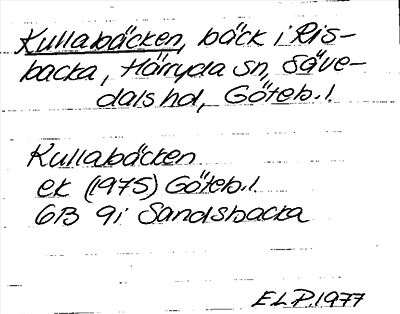 Kullabäcken, bäck i Ris-
backa, Härryda sn, Säve-
dals hd, Göteb.l.
Kullabäcken
ek (1975) Göteb.l.
6B 9i Sandsbacka
E.L.P. 1977